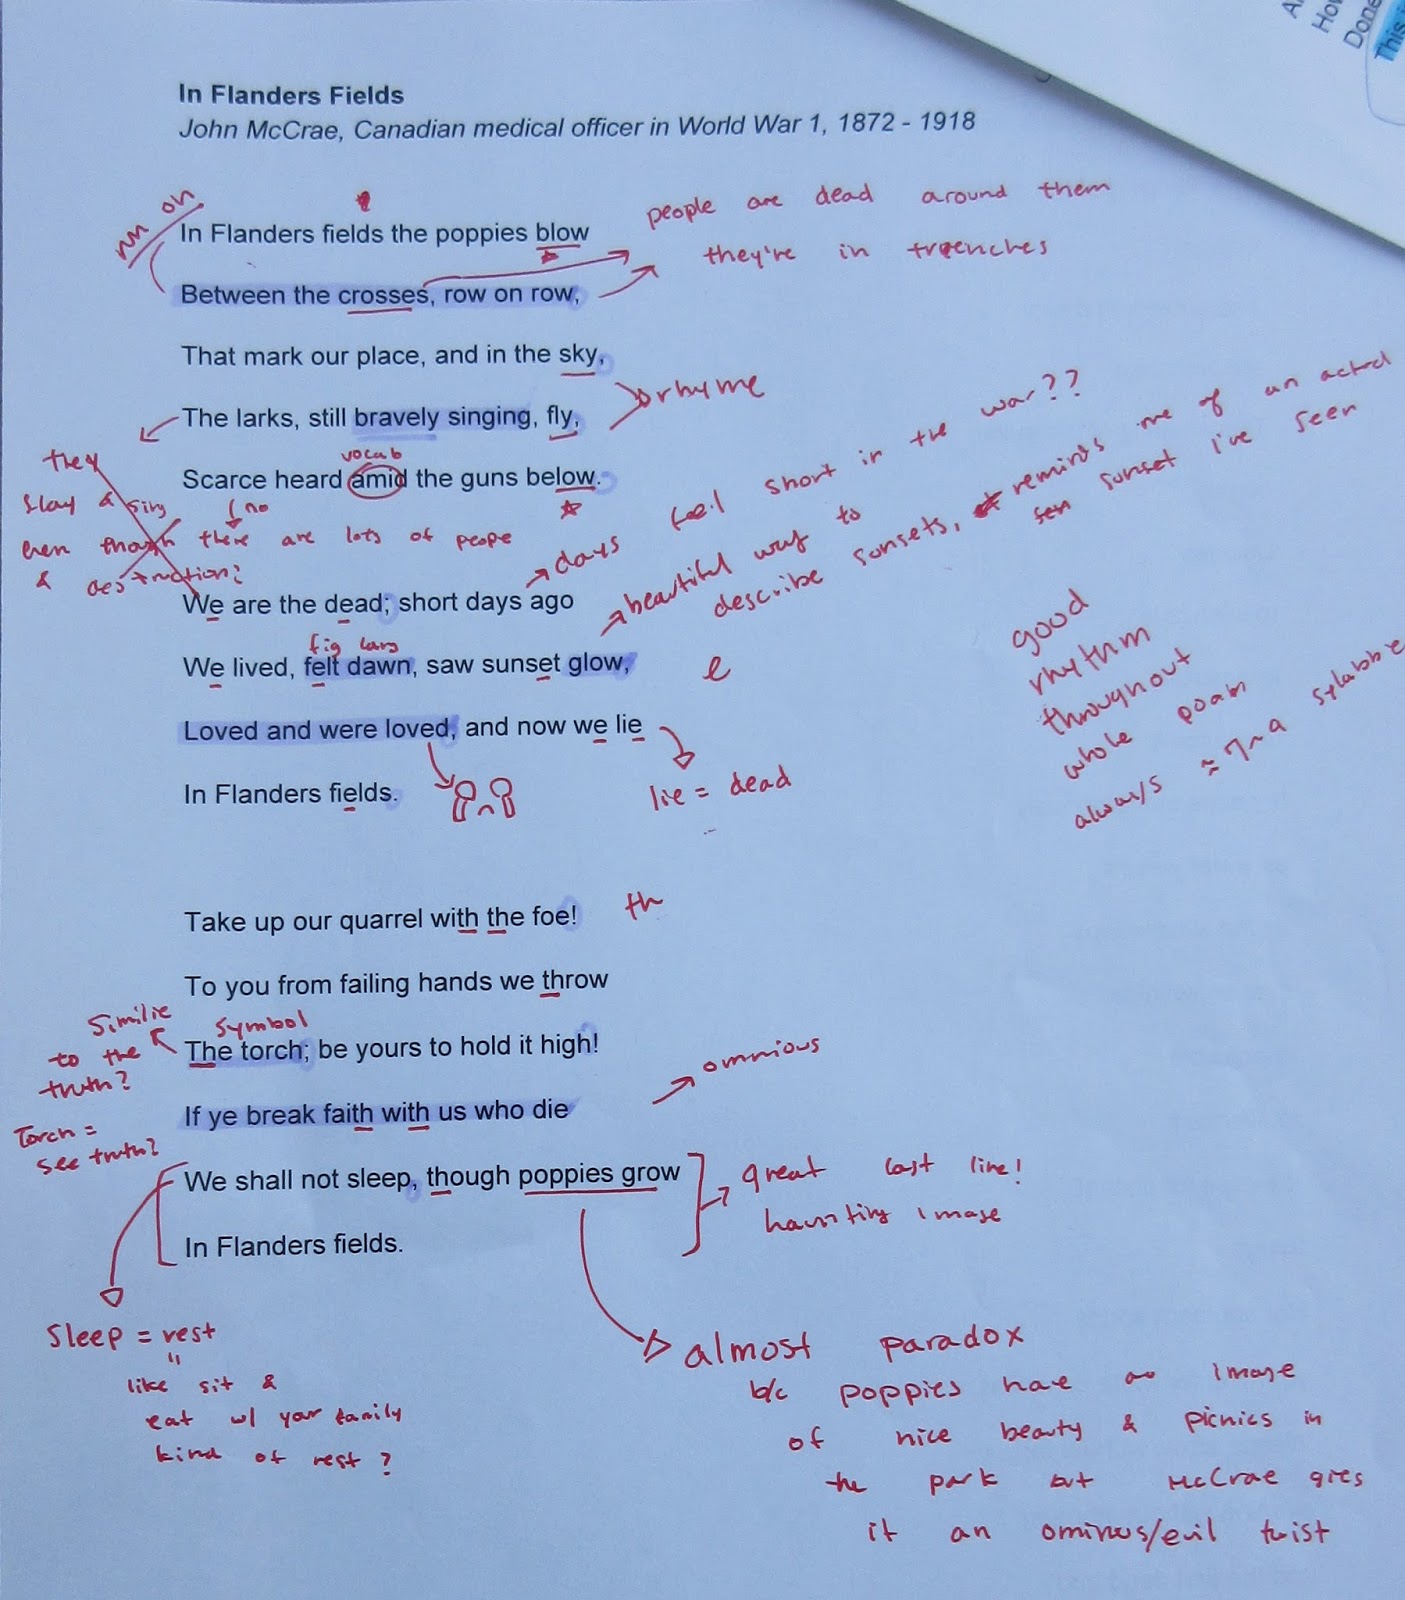 A
How
Done
This i
In Flanders Fields
John McCrae, Canadian medical officer in World War 1, 1872 - 1918
on
In Flanders fields the poppies blow
people are dead around them
they're in trenches
Between the crosses, row on row,
That mark our place, and in the sky,
rhyme
The larks, still bravely singing, fly,
vocab
Scarce heard amid the guns below.
they
slay & sing
(no
even though there are lots of people
& destruction?
days feel short in the war??
We are the dead; short days ago
beautiful way to
describe sunsets, reminds me of an actual
sunset I've seen
fig lang
We lived, felt dawn, saw sunset glow,
e
Loved and were loved, and now we lie
lie = dead
In Flanders fields.
good
rhythm
throughout
whole poam
always ≈ 7~9 sylabble
Take up our quarrel with the foe!
th
To you from failing hands we throw
Similie
to the
truth?
symbol
The torch; be yours to hold it high!
omnious
If ye break faith with us who die
Torch =
see truth?
We shall not sleep, though poppies grow
great last line!
haunting image
In Flanders fields.
Sleep = rest
"
like sit &
eat w/ your family
kind of rest?
almost paradox
b/c poppies have an image
of nice beauty & picnics in
the park but McCrae gies
it an ominous/evil twist